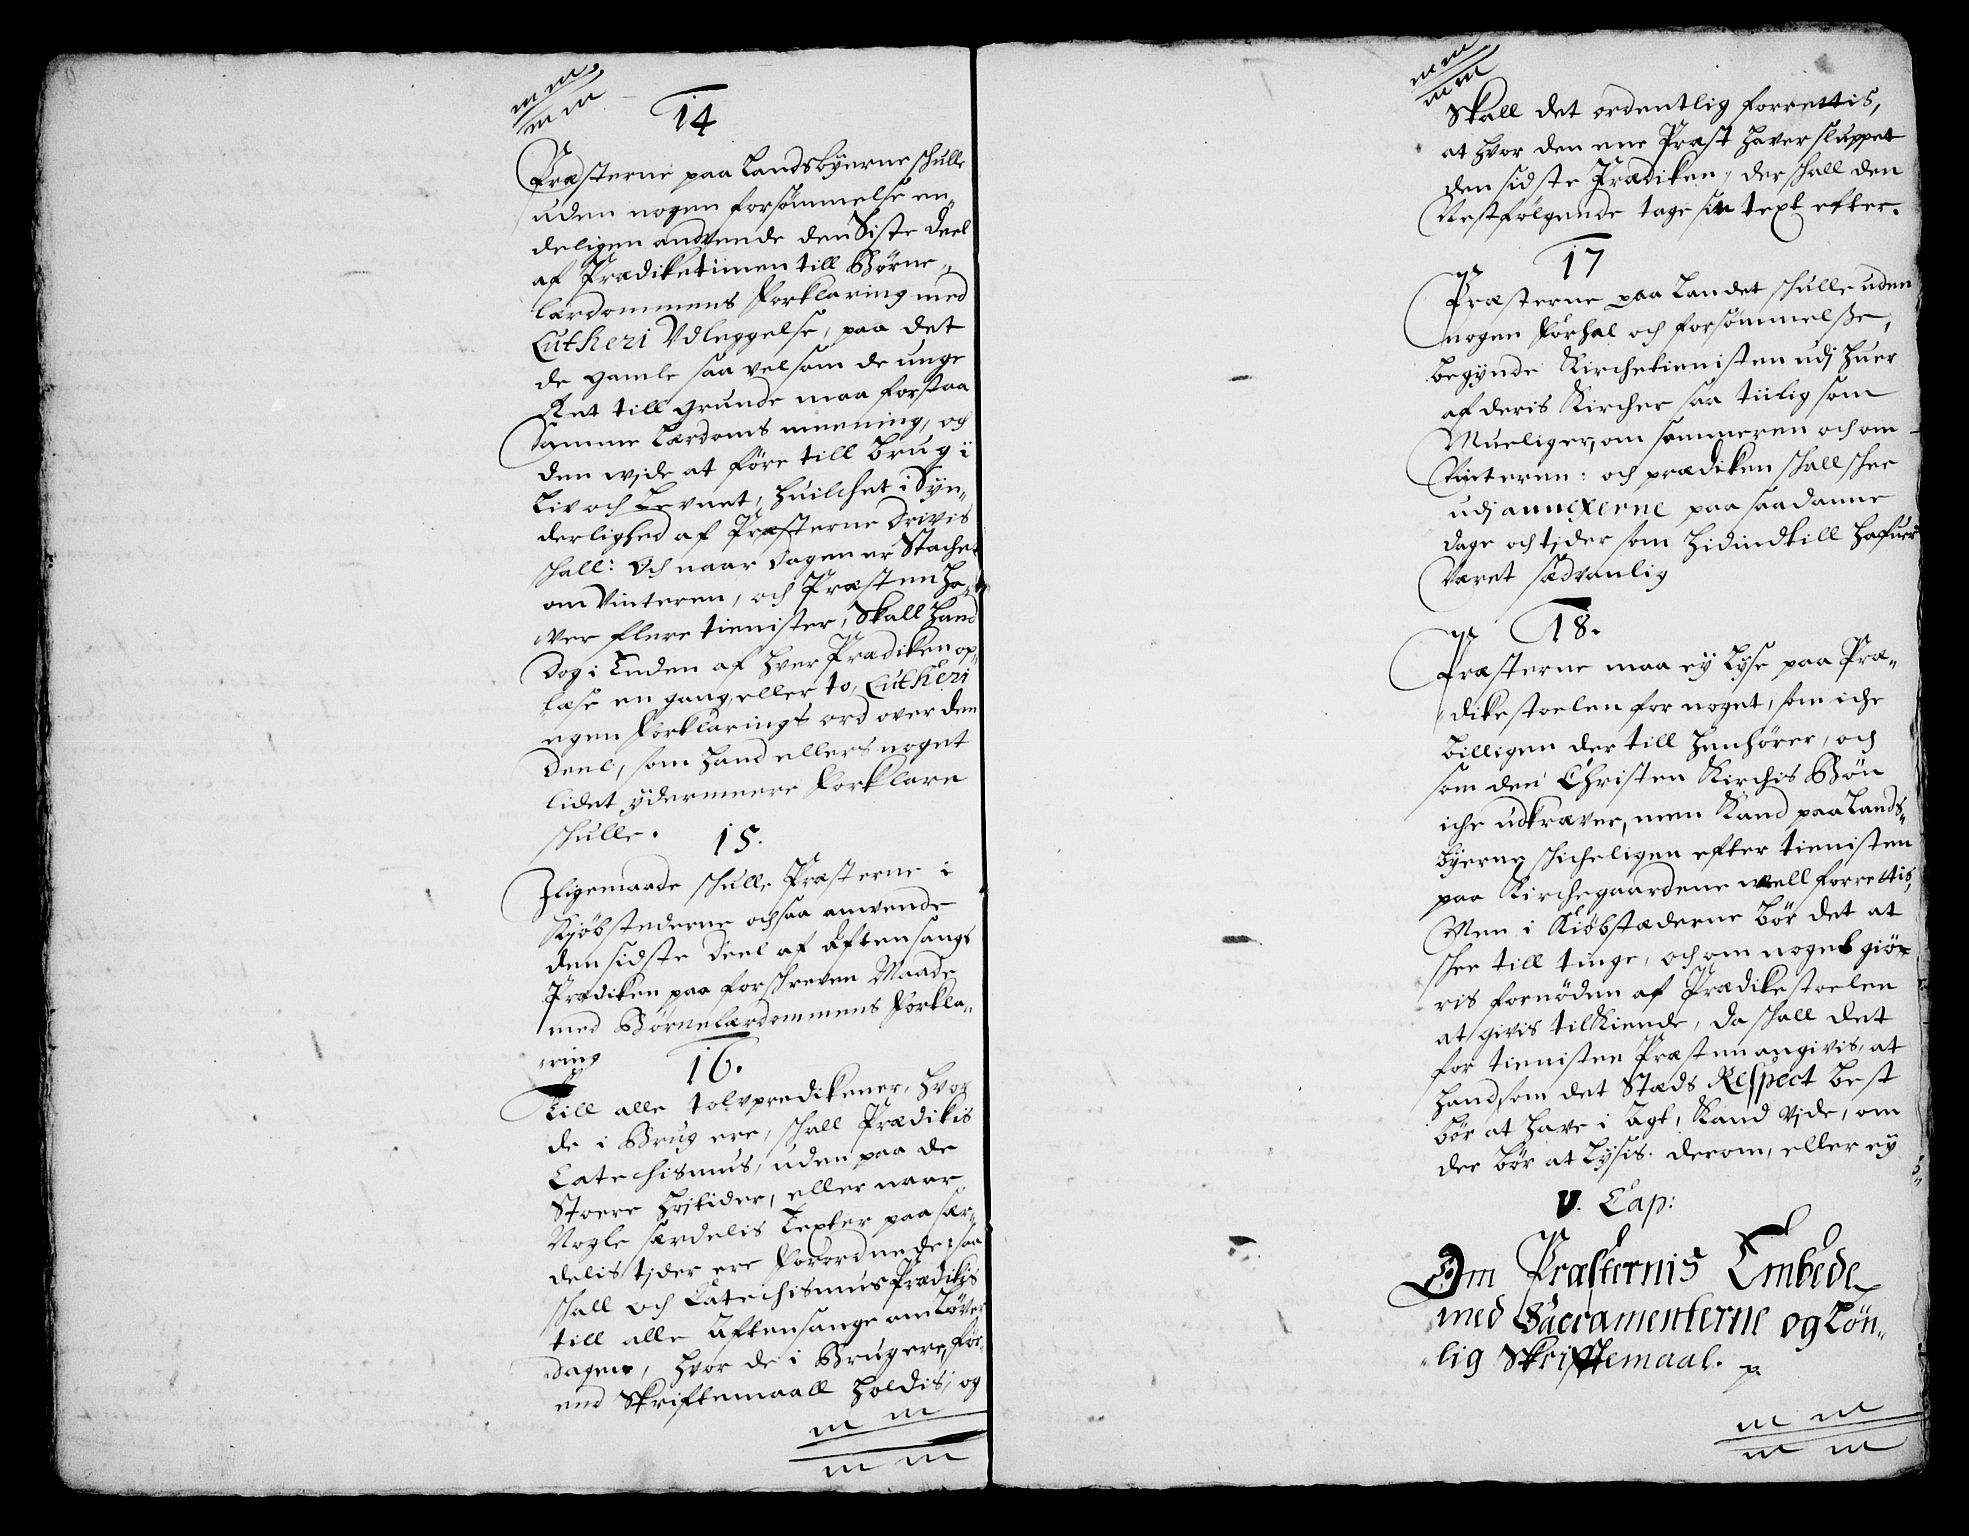 14
Præsterne paa Landsbÿerne schulle
uden nogen forsömmelse en„
deligen andvende den Siste deel
af Prædiketimen till Börne„
lærdommens Forklaring med
Lutheri Udleggelse, paa det
de gamle saa vel som de unge
Ret till grunde maa forstaa
Samme Lærdoms meening, og
den wide at före till brug i
Liv och Levnet, huilchet i Syn„
derlighed af Præsterne drivis
schall: Och naar dagen er Stachet
om Vinteren, och Præsten ha„
ver flere tienister, Skall hand
dog i Enden af hver Prædiken op„
læse en gang eller to, Lutheri
egen Forklarings ord over den
deel, som hand ellers noget
lidet ÿdermeere Forklare
schulle.
15.
Iligemaade schulle Præsterne i
Kjöbstederne ochsaa anvende
den sidste deel af Aftensangs
Prædiken paa forschreven Maade
med Börnelærdommens Forkla„
ring
16.
Till alle tolvpredikener, hvor
de i Brug ere, schall Prædikis
Catechismus, uden paa de
Stoere Höjtider, eller naar
Nogle særdelis Texter paa sær„
delis tjder ere Forordnede: saa
schall och Catechismus Prædikis
till alle Aftensange om Löver
dagene, hvor de i Brug ere, för„
end Skriftemaall holdis, og
Skall det ordentlig forrettis,
at hvor den ene Præst haver sluppet
den sidste Prædiken, der schall den
Nestfölgende tage sin text efter.
17
Præsterne paa Landet schulle uden
nogen Forhal och forsömmelsse,
begÿnde Kirchetienisten udj huer
af deris Kircher saa tiilig som
Mueligt er, om sommeren och om
Vinteren: och prædiken schall schee
udj annexerne paa saadanne
dage och tjder som hidindtill hafuer
Været sædvanlig
18.
Præsterne maa ey Lyse paa Præ„
dikestoelen for noget, som iche
billigen der till henhörer, och
som den Christen Kirchis Bön
iche udkræver, men Kand paa Lands„
bÿerne schicheligen efter tienisten
paa Kirchegaardene well forrettis,
Men i Kiöbstæderne bör det at
schee till tinge, och om noget giö„
ris fornöden af Prædikestoelen
at givis tilkiende, da schall det
for tienisten Præsten angivis, at
hand, som det Stæds Respect best
bör at have i Agt, Kand vide, om
der bör at Lysis derom, eller ey
V. Cap:
Om Præsternis Embede
med Sacramenterne og Lön„
lig Skriftemaal.